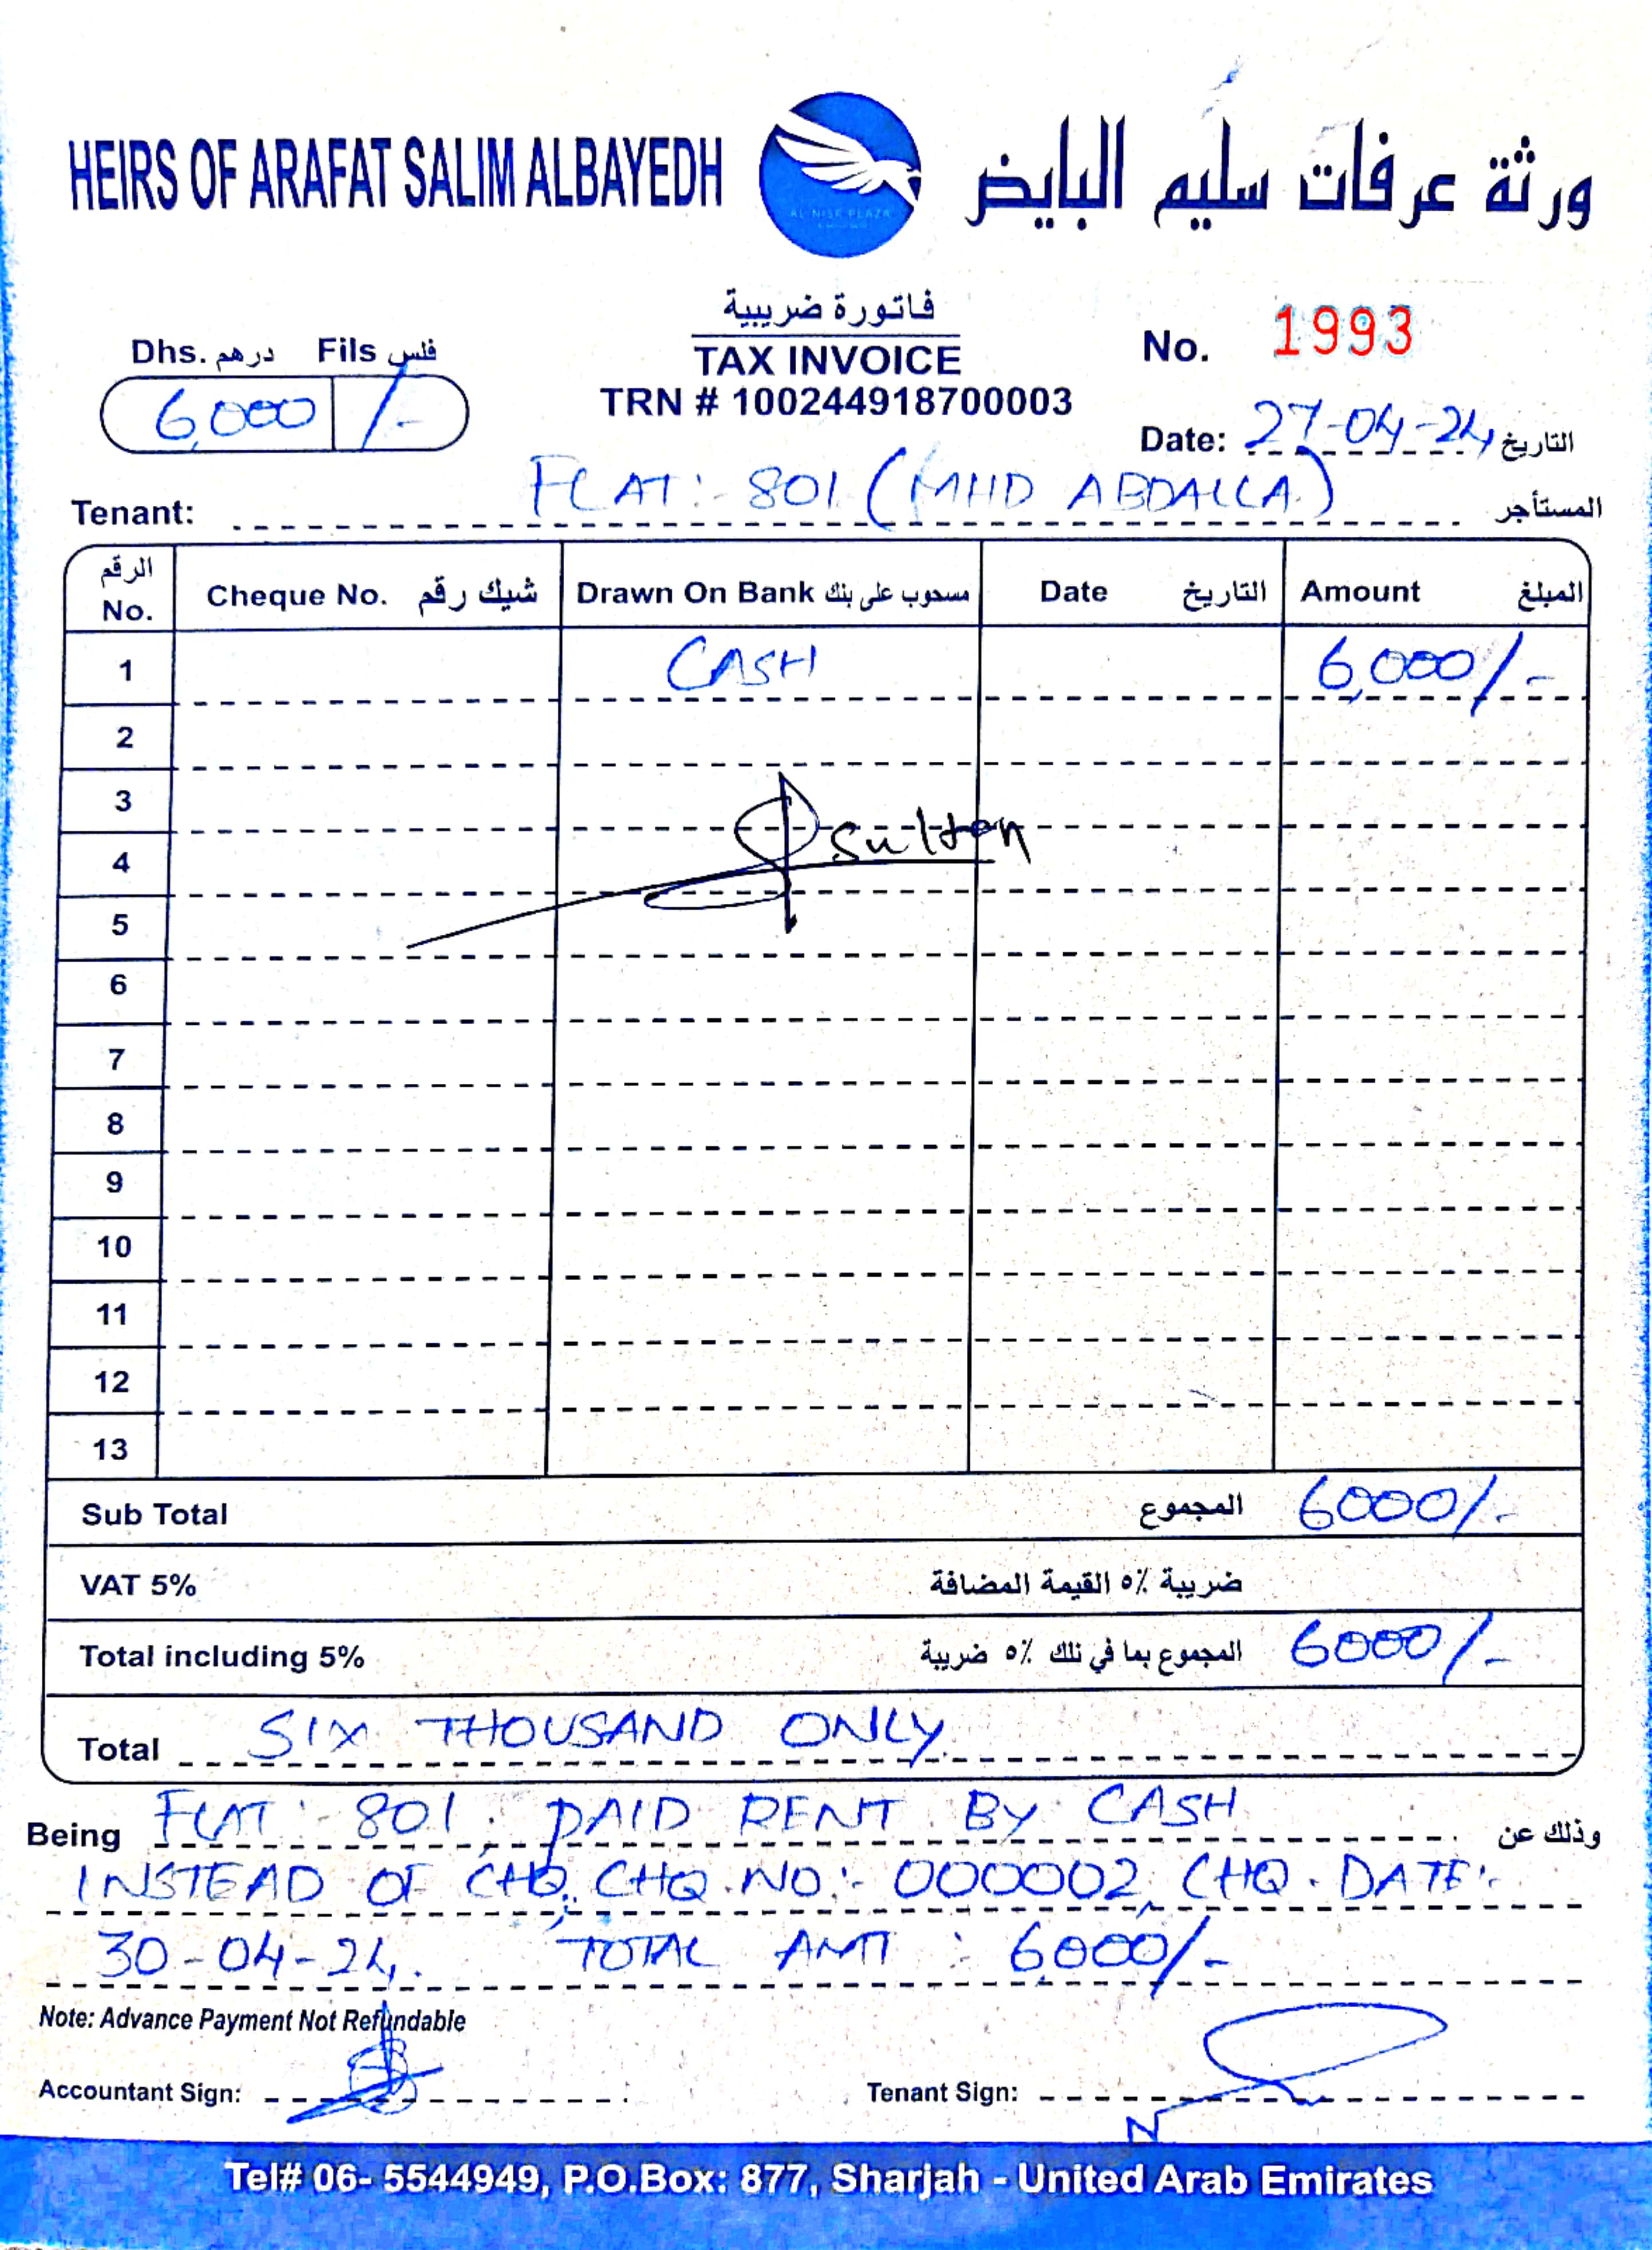 HEIRS OF ARAFAT SALIM ALBAYEDH
ورثة عرفات سليم البايض
AL NISR PLAZA
Dhs. درهم Fils فلس
6,000 /-
فاتورة ضريبية
TAX INVOICE
TRN # 100244918700003
No. 1993
Date: 27-04-24 التاريخ
Tenant: FLAT:- 801 (MHD ABDALLA) المستأجر
الرقم No. Cheque No. شيك رقم Drawn On Bank مسحوب على بنك Date التاريخ Amount المبلغ
1 CASH 6,000/-
2
3
Sultan
4
5
6
7
8
9
10
11
12
13
Sub Total المجموع 6000/-
VAT 5% ضريبة ٥٪ القيمة المضافة
Total including 5% المجموع بما في تلك ٥٪ ضريبة 6000/-
Total SIX THOUSAND ONLY.
Being FLAT:- 801. PAID RENT BY CASH وذلك عن
INSTEAD OF CHQ. CHQ.NO:- 000002, CHQ. DATE:-
30-04-24. TOTAL AMT : 6,000/-
Note: Advance Payment Not Refundable
Accountant Sign: Tenant Sign:
Tel# 06- 5544949, P.O.Box: 877, Sharjah - United Arab Emirates